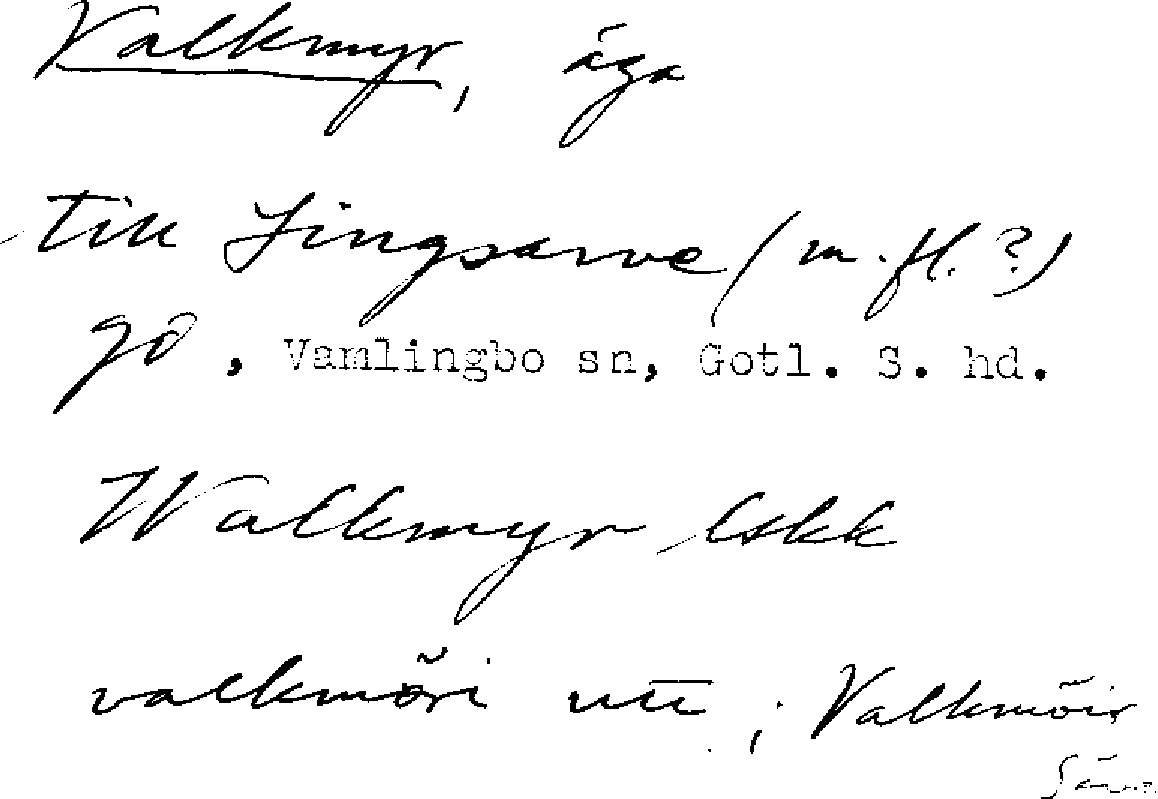 Valkmyr, äga
till Lingsarve (m.fl.?)
gd, Vamlingbo sn, Gotl. S. hd.
Walkmyr lskk
valkmöri utt; Valkmöir